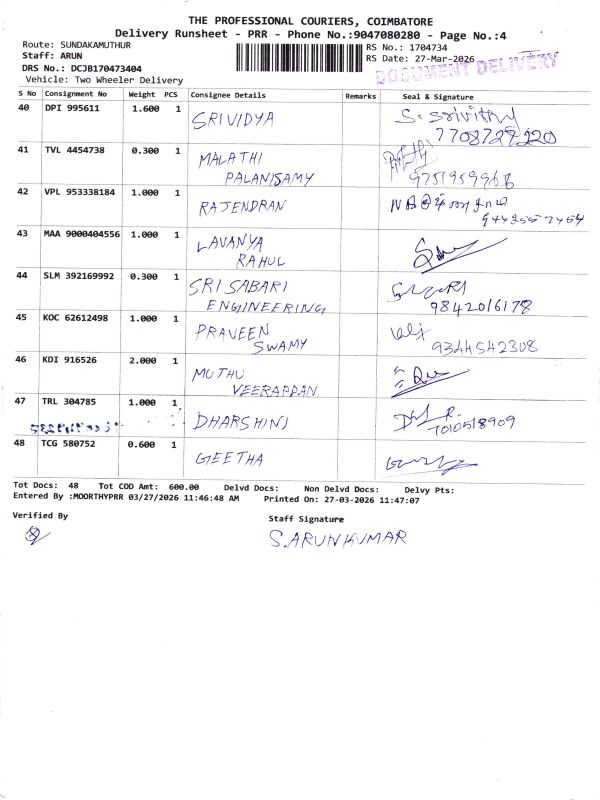 THE PROFESSIONAL COURIERS, COIMBATORE
Delivery Runsheet - PRR - Phone No.:9047080280 - Page No.:4
Route: SUNDAKAMUTHUR
RS No.: 1704734
Staff: ARUN
RS Date: 27-Mar-2026
DOCUMENT DELIVERY
DRS No.: DCJB170473404
Vehicle: Two Wheeler Delivery
S No Consignment No Weight PCS Consignee Details Remarks Seal & Signature
40 DPI 995611 1.600 1 SRIVIDYA S. Srividhy
7708729220
41 TVL 4454738 0.300 1 MALATHI
PALANISAMY 9751959966
42 VPL 953338184 1.000 1 RAJENDRAN
43 MAA 9000404556 1.000 1 LAVANYA
RAHUL
44 SLM 392169992 0.300 1 SRI SABARI
ENGINEERING 9842016178
45 KOC 62612498 1.000 1 PRAVEEN
SWAMY 9344542308
46 KDI 916526 2.000 1 MUTHU
VEERAPPAN
47 TRL 304785 1.000 1 DHARSHINI
7010518909
48 TCG 580752 0.600 1 GEETHA
Tot Docs: 48 Tot COD Amt: 600.00 Delvd Docs: Non Delvd Docs: Delvy Pts:
Entered By :MOORTHYPRR 03/27/2026 11:46:48 AM Printed On: 27-03-2026 11:47:07
Verified By
Staff Signature
S.ARUNKUMAR